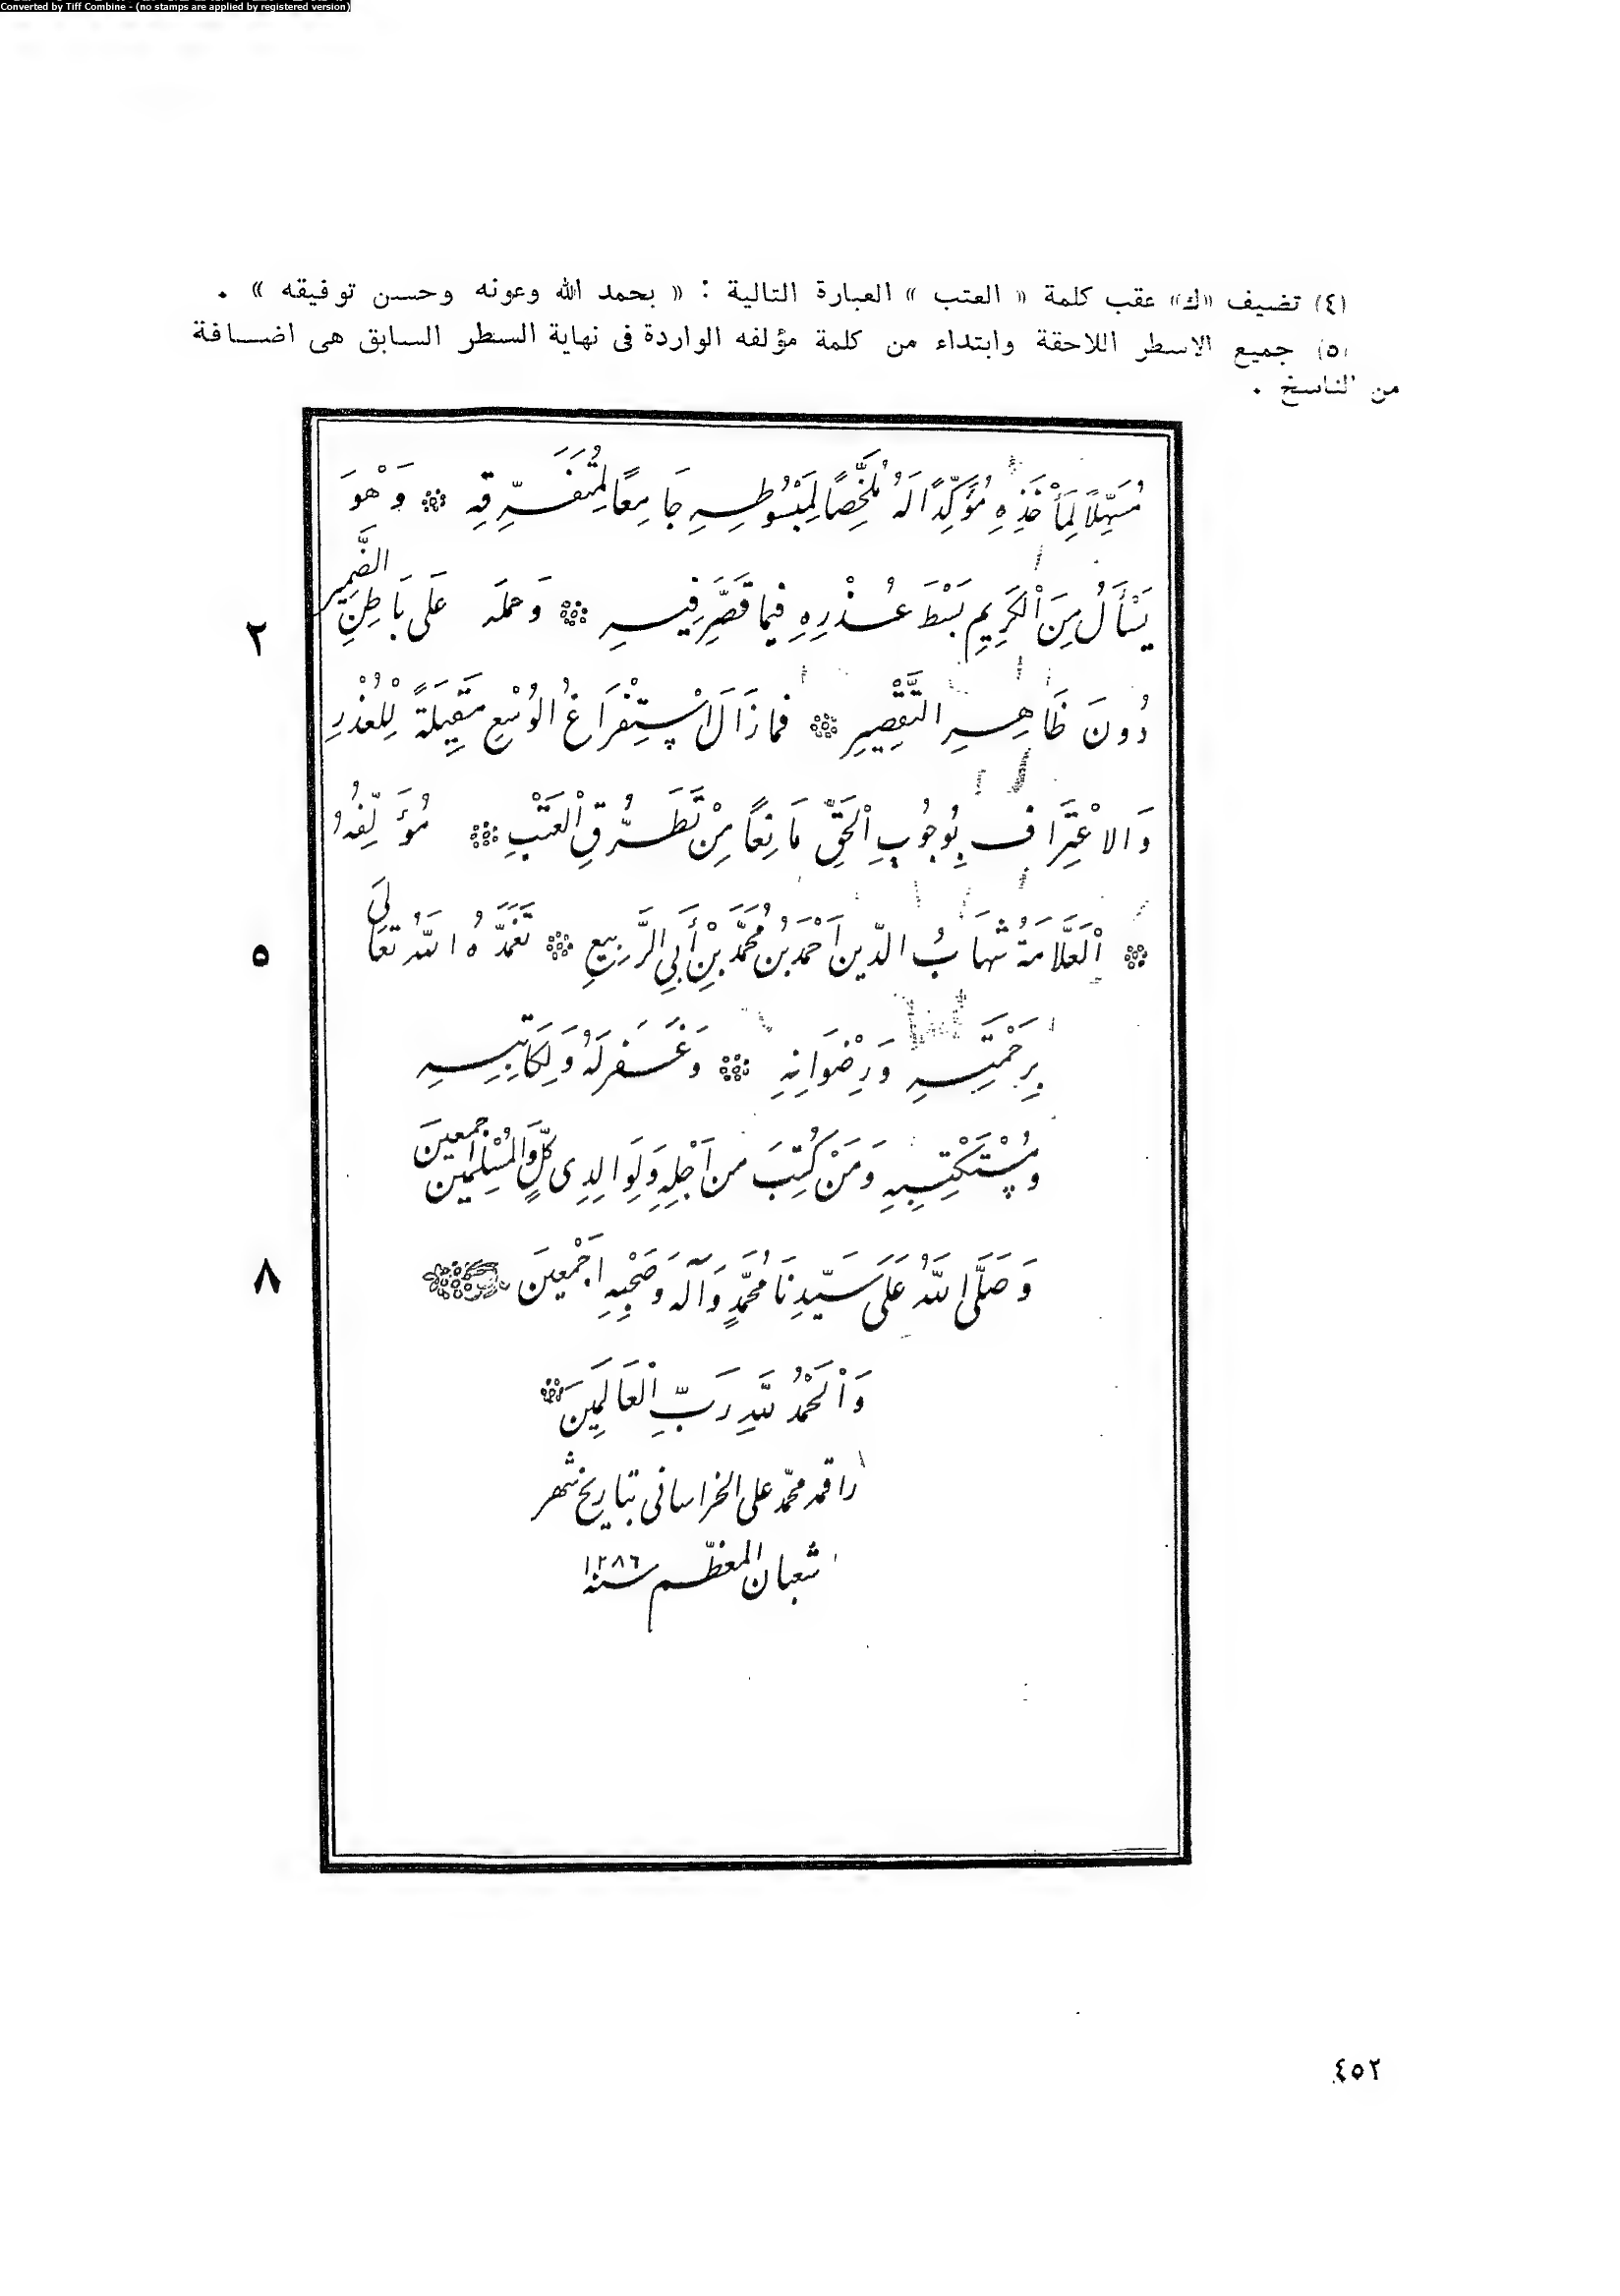 Converted by Tiff Combine - (no stamps are applied by registered version)
(٤) تضيف «ك» عقب كلمة « العتب » العبارة التالية : « بحمد الله وعونه وحسن توفيقه » .
(٥) جميع الاسطر اللاحقة وابتداء من كلمة مؤلفه الواردة فى نهاية السطر السابق هى اضـــافة
من الناسخ .
مُسَهِّلاً لِمَأْخَذِهِ مُؤَكِّدًا لَهُ مُلَخِّصًا لِمَبْسُوطِهِ جَامِعًا لِمُتَفَرِّقِهِ وَهْوَ
يَسْأَلُ مِنَ الْكَرِيمِ بَسْطَ عُذْرِهِ فِيمَا قَصَّرَ فِيهِ وَحَمَلَه عَلَى بَاطِنِ الضَّمِيرِ
٢
دُونَ ظَاهِرِ التَّقْصِيرِ فَمَا زَالَ اسْتِفْرَاغُ الوُسْعِ مَقِيلَةً لِلْعُذْرِ
وَالاعْتِرَافِ بِوُجُوبِ الْحَقِّ مَانِعًا مِنْ تَطَرُّقِ الْعَتْبِ مُؤَلِّفُهُ
الْعَلَّامَةُ شهَابُ الدّين اَحْمَدُ بْنُ مُحَمَّدِ بْنِ أَبِي الرَّبِيعِ تَغَمَّدَهُ اللهُ تَعَالَى
٥
بِرَحْمَتِهِ وَرِضْوَانِهِ وَغَفَرَ لَهُ وَلِكَاتِبِهِ
وَمُسْتَكْتِبِهِ وَمَنْ كُتِبَ من اَجْلِهِ وَلِوَالِدِى كُلٍّ وَالْمُسْلِمِينَ اجمعينَ
وَصَلَّى اللهُ عَلَى سَيِّدِنَا مُحَمَّدٍ وَآلَهِ وَصَحْبِهِ اَجْمْعِينَ
٨
وَالْحَمْدُ لِلَّهِ رَبِّ الْعَالَمِينَ
راقمه محمّد على الخراسانى بتاريخ شهر
شعبان المعظّم سنه ١٢٨٦
٤٥٢